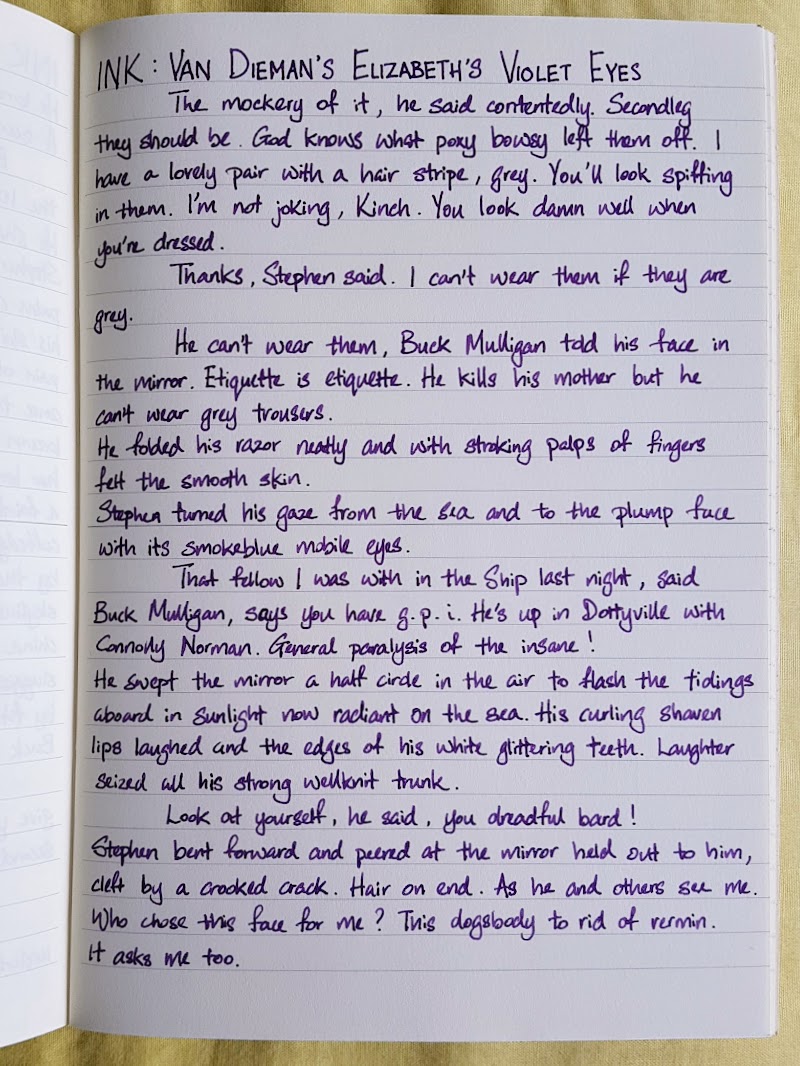 INK: VAN DIEMAN'S ELIZABETH'S VIOLET EYES
The mockery of it, he said contentedly. Secondleg
they should be. God knows what poxy bowsy left them off. I
have a lovely pair with a hair stripe, grey. You'll look spiffing
in them. I'm not joking, Kinch. You look damn well when
you're dressed.
Thanks, Stephen said. I can't wear them if they are
grey.
He can't wear them, Buck Mulligan told his face in
the mirror. Etiquette is etiquette. He kills his mother but he
can't wear grey trousers.
He folded his razor neatly and with stroking palps of fingers
felt the smooth skin.
Stephen turned his gaze from the sea and to the plump face
with its smokeblue mobile eyes.
That fellow I was with in the Ship last night, said
Buck Mulligan, says you have g.p.i. He's up in Dottyville with
Connolly Norman. General paralysis of the insane!
He swept the mirror a half circle in the air to flash the tidings
aboard in sunlight now radiant on the sea. His curling shaven
lips laughed and the edges of his white glittering teeth. Laughter
seized all his strong wellknit trunk.
Look at yourself, he said, you dreadful bard!
Stephen bent forward and peered at the mirror held out to him,
cleft by a crooked crack. Hair on end. As he and others see me.
Who chose this face for me? This dogsbody to rid of vermin.
It asks me too.